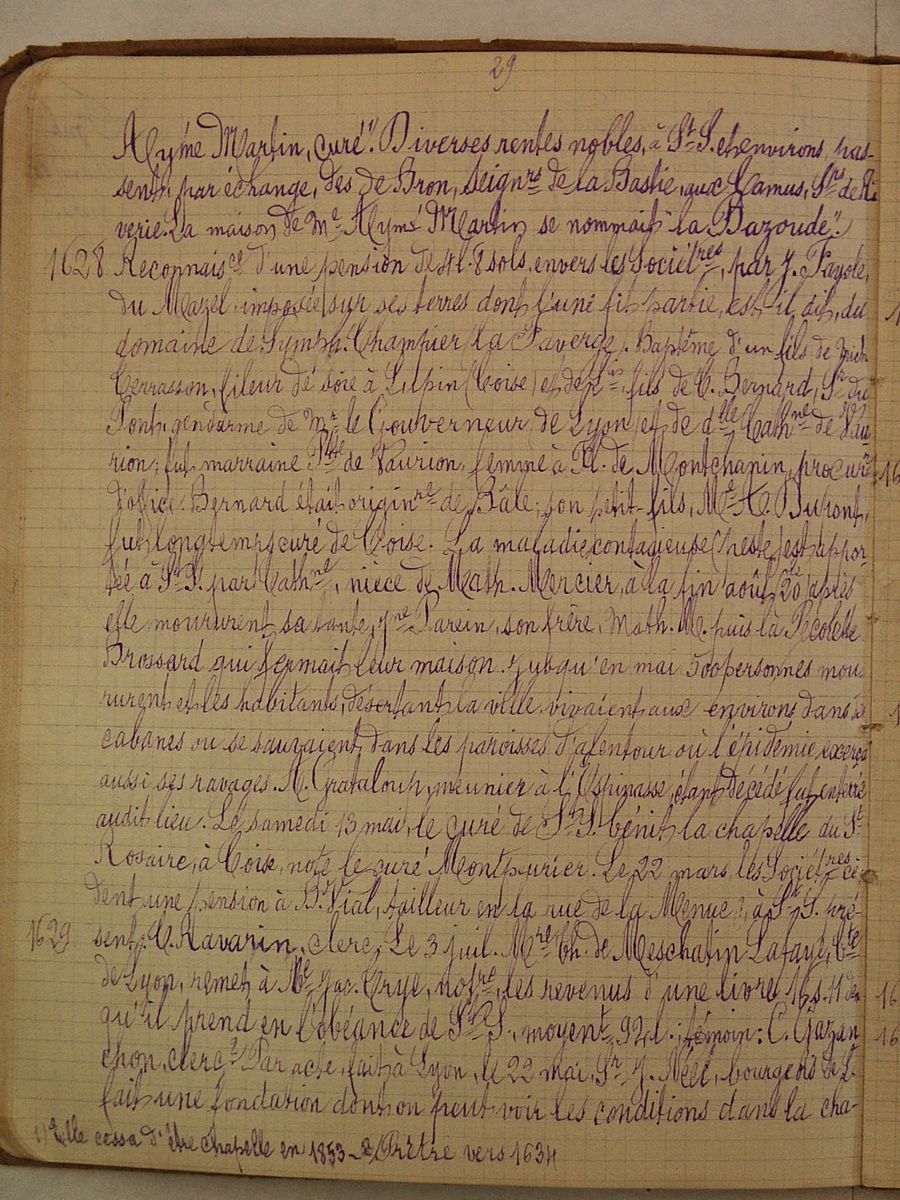 29
Aymé Martin, curé". Diverses rentes nobles, à St S. et environs, pas-
sent, par échange, des de Bron, seignrs de la Bastie, aux Camus, Srs de Ri
verie. La maison de Me Aymé Martin se nommait "la Bazoude".
1628 Reconnaisce d'une pension de 4 l. 8 sols, envers les Sociétres, par J. Fayole,
du Mazel, imposée sur ses terres dont l'une fit partie, est-il dit, du
domaine de Symph. Champier (la Faverge). Baptême d'un fils de
Terrasson, fileur de soie à Lupin (Coise) et de fils de C. Bernard, Sr du
Pont, gendarme de Mr le Gouverneur de Lyon, et de dlle Cathne de Vau
rion; fut marraine Phte de Vaurion, femme à Pl. de Montchanin, procurr
d'office. Bernard était originre de Bâle; son petit-fils, Me A. Dupont,
fut longtemps curé de Coise. La maladie contagieuse (peste) est appor-
tée à St S. par Cathne, nièce de Math. Mercier, à la fin août 28; après
elle moururent sa tante, Jne Parein, son frère, Math. M. puis la Pécolette
Brossard qui fermait leur maison. Jusqu'en mai 500 personnes mou
rurent et les habitants, désertant la ville vivaient aux environs dans des
cabanes ou se sauvaient dans les paroisses d'alentour où l'épidémie exerça
aussi ses ravages. A. Grataloup, meunier à l'Espinasse étant décédé fut enterré
audit lieu. Le samedi 13 mai, le curé de St S. bénit la chapelle du St
Rosaire, à Coise, note le curé Montpurier. Le 22 mars, les Sociétres cè-
dent une pension à Bt Vial, tailleur en la rue de la Menue, à St S. pré-
1629 sent, C. Ravarin, clerc. Le 3 juil. Mre Ch. de Meschatin Lafaye, Cte
de Lyon, remet à Me Jac. Crye, notre, les revenus d'une livre 16 s. 11 den
qu'il prend en l'obéance de St S., moyent 92 l.; témoin: C. Gazan
chon, clerc2. Par acte, fait à Lyon, le 22 mai, Sr J. Néel, bourgeois de L.
fait une fondation dont on peut voir les conditions dans la cha-
1) Elle cessa d'être chapelle en 1853 - 2) Prêtre vers 1634